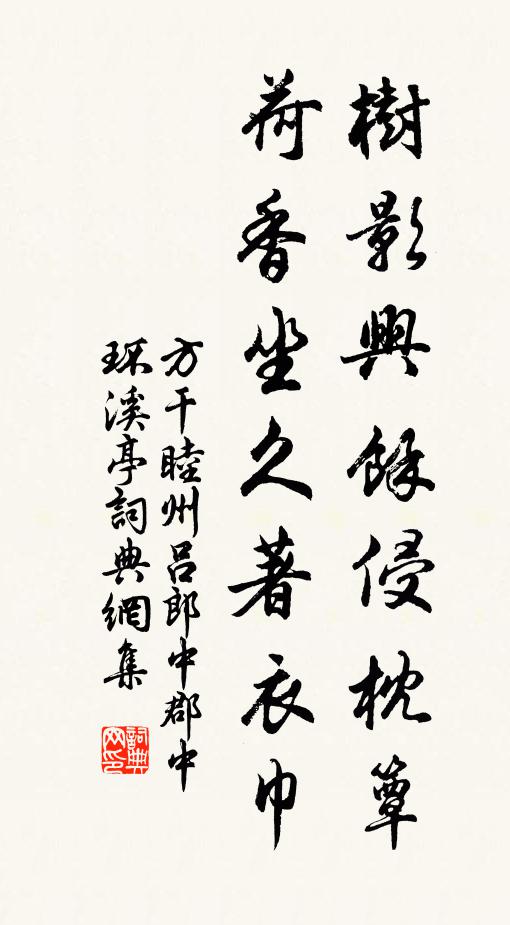 樹影興餘侵枕簟
荷香坐久著衣巾
方干睦州呂郎中郡中
環溪亭詞典網集
詞典網印